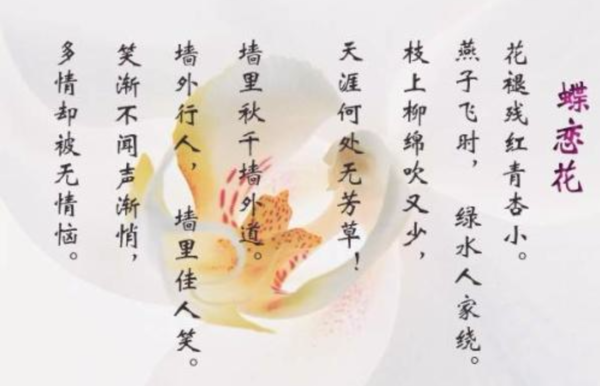 蝶恋花
花褪残红青杏小。
燕子飞时，绿水人家绕。
枝上柳绵吹又少，
天涯何处无芳草！
墙里秋千墙外道。
墙外行人，墙里佳人笑。
笑渐不闻声渐悄，
多情却被无情恼。